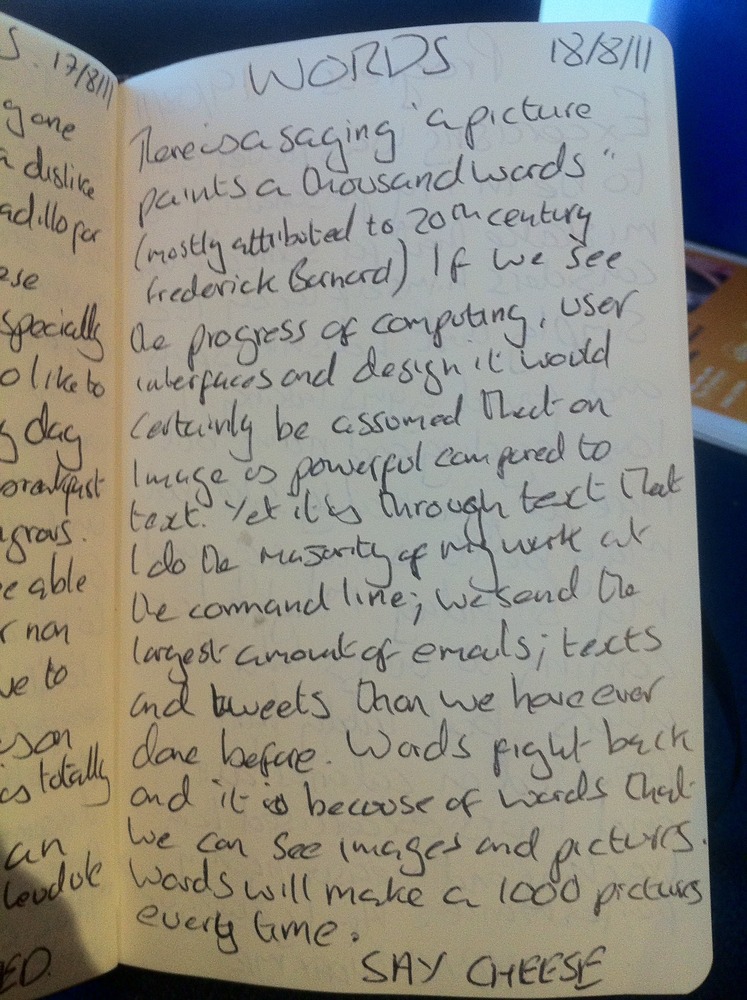 S. 17/8/11
g one
a dislike
adillo par
ese
specially
o like to
g day
breakfast
grous.
e able
r non
ve to
son
is totally
an
ED.
WORDS 18/8/11
There is a saying "a picture
paints a thousand words"
(mostly attributed to 20th century
Frederick Barnard) If we see
the progress of computing, user
interfaces and design it would
certainly be assumed that an
Image is powerful compared to
text. Yet it is through text that
I do the majority of my work at
the command line; we send the
largest amount of emails; texts
and tweets than we have ever
done before. Words fight back
and it is because of words that
we can see images and pictures.
Words will make a 1000 pictures
every time.
SAY CHEESE